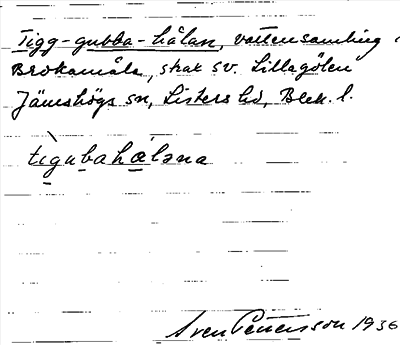 Tigg-gubba-hålan, vattensamling i
Brokamåla, strax sv. Lillagölen
Jämshögs sn, Listers hd, Blek. l.
tigubahåləna
Sven Pettersson 1936